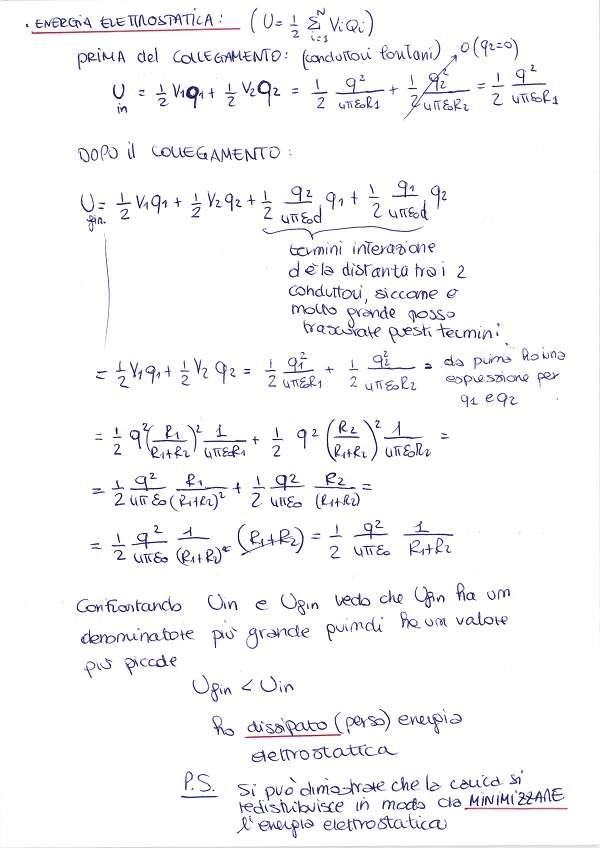 • ENERGIA ELETTROSTATICA: (U = 1/2 Σ_{i=1}^{N} Vi Qi)
PRIMA del COLLEGAMENTO: (conduttori lontani) 0 (q2=0)
U_in = 1/2 V1q1 + 1/2 V2q2 = 1/2 q²/(4πε0R1) + 1/2 q2²/(4πε0R2) = 1/2 q²/(4πε0R1)
DOPO il COLLEGAMENTO:
U_fin. = 1/2 V1q1 + 1/2 V2q2 + 1/2 q2/(4πε0d) q1 + 1/2 q1/(4πε0d) q2
termini interazione
d è la distanta tra i 2
conduttori, siccome è
molto grande posso
trascurate questi termini
= 1/2 V1q1 + 1/2 V2 q2 = 1/2 q1²/(4πε0R1) + 1/2 q2²/(4πε0R2) = da prima ho una
espressione per
q1 e q2
= 1/2 q² (R1/(R1+R2))² 1/(4πε0R1) + 1/2 q² (R2/(R1+R2))² 1/(4πε0R2) =
= 1/2 q²/(4πε0) R1/(R1+R2)² + 1/2 q²/(4πε0) R2/(R1+R2)² =
= 1/2 q²/(4πε0) 1/(R1+R2)² (R1+R2) = 1/2 q²/(4πε0) 1/(R1+R2)
Confrontando Uin e Ufin vedo che Ufin ha um
denominatore più grande quindi ha un valore
più piccole
Ufin < Uin
ho dissipato (perso) energia
elettrostatica
P.S. Si può dimostrate che la carica si
redistribuisce in modo da MINIMIZZARE
l'energia elettrostatica